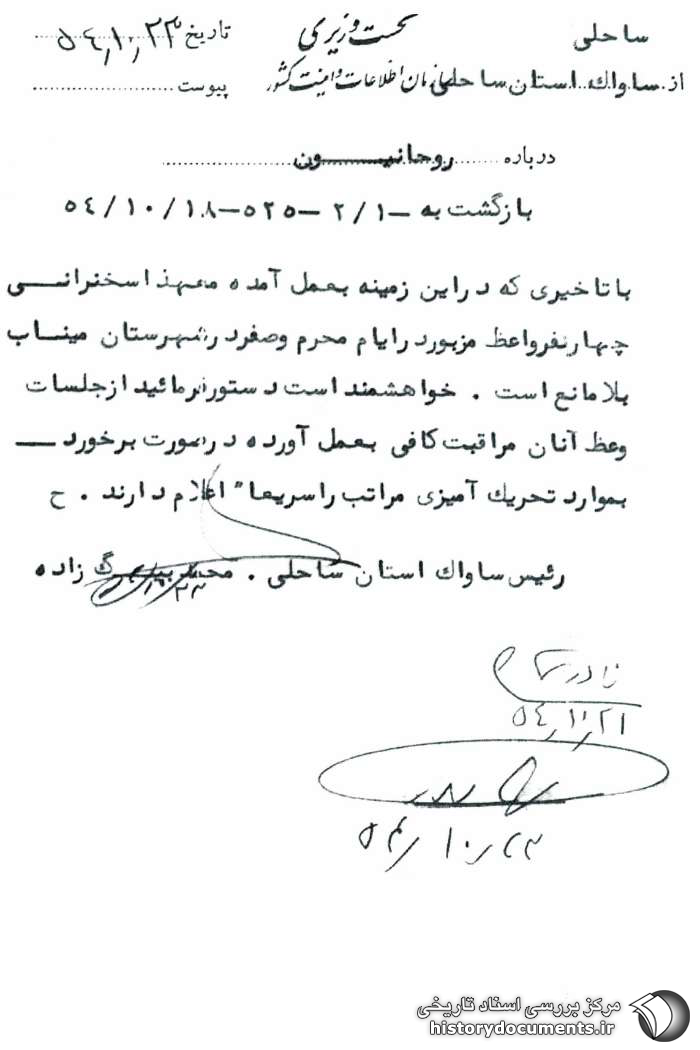 ساحلی نخست وزیری تاریخ ۵٤/۱۰/۲۳
از ساواک استان ساحلی سازمان اطلاعات و امنیت کشور پیوست
درباره روحانیون
بازگشت به —۲/۱ —۵۲۵—۵٤/۱۰/۱۸
با تاخیری که در این زمینه بعمل آمده معهذا سخنرانی
چهار نفر واعظ مزبور در ایام محرم و صفر در شهرستان میناب
بلامانع است . خواهشمند است دستور فرمائید از جلسات
وعظ آنان مراقبت کافی بعمل آورده در صورت برخورد —
بموارد تحریک آمیزی مراتب را سریعا" اعلام دارند . ح
رئیس ساواک استان ساحلی . زاده
۲۳
نادر
۵٤/۱۰/۲۱
۵۴/۱۰/۲۳
مرکز بررسی اسناد تاریخی
historydocuments.ir